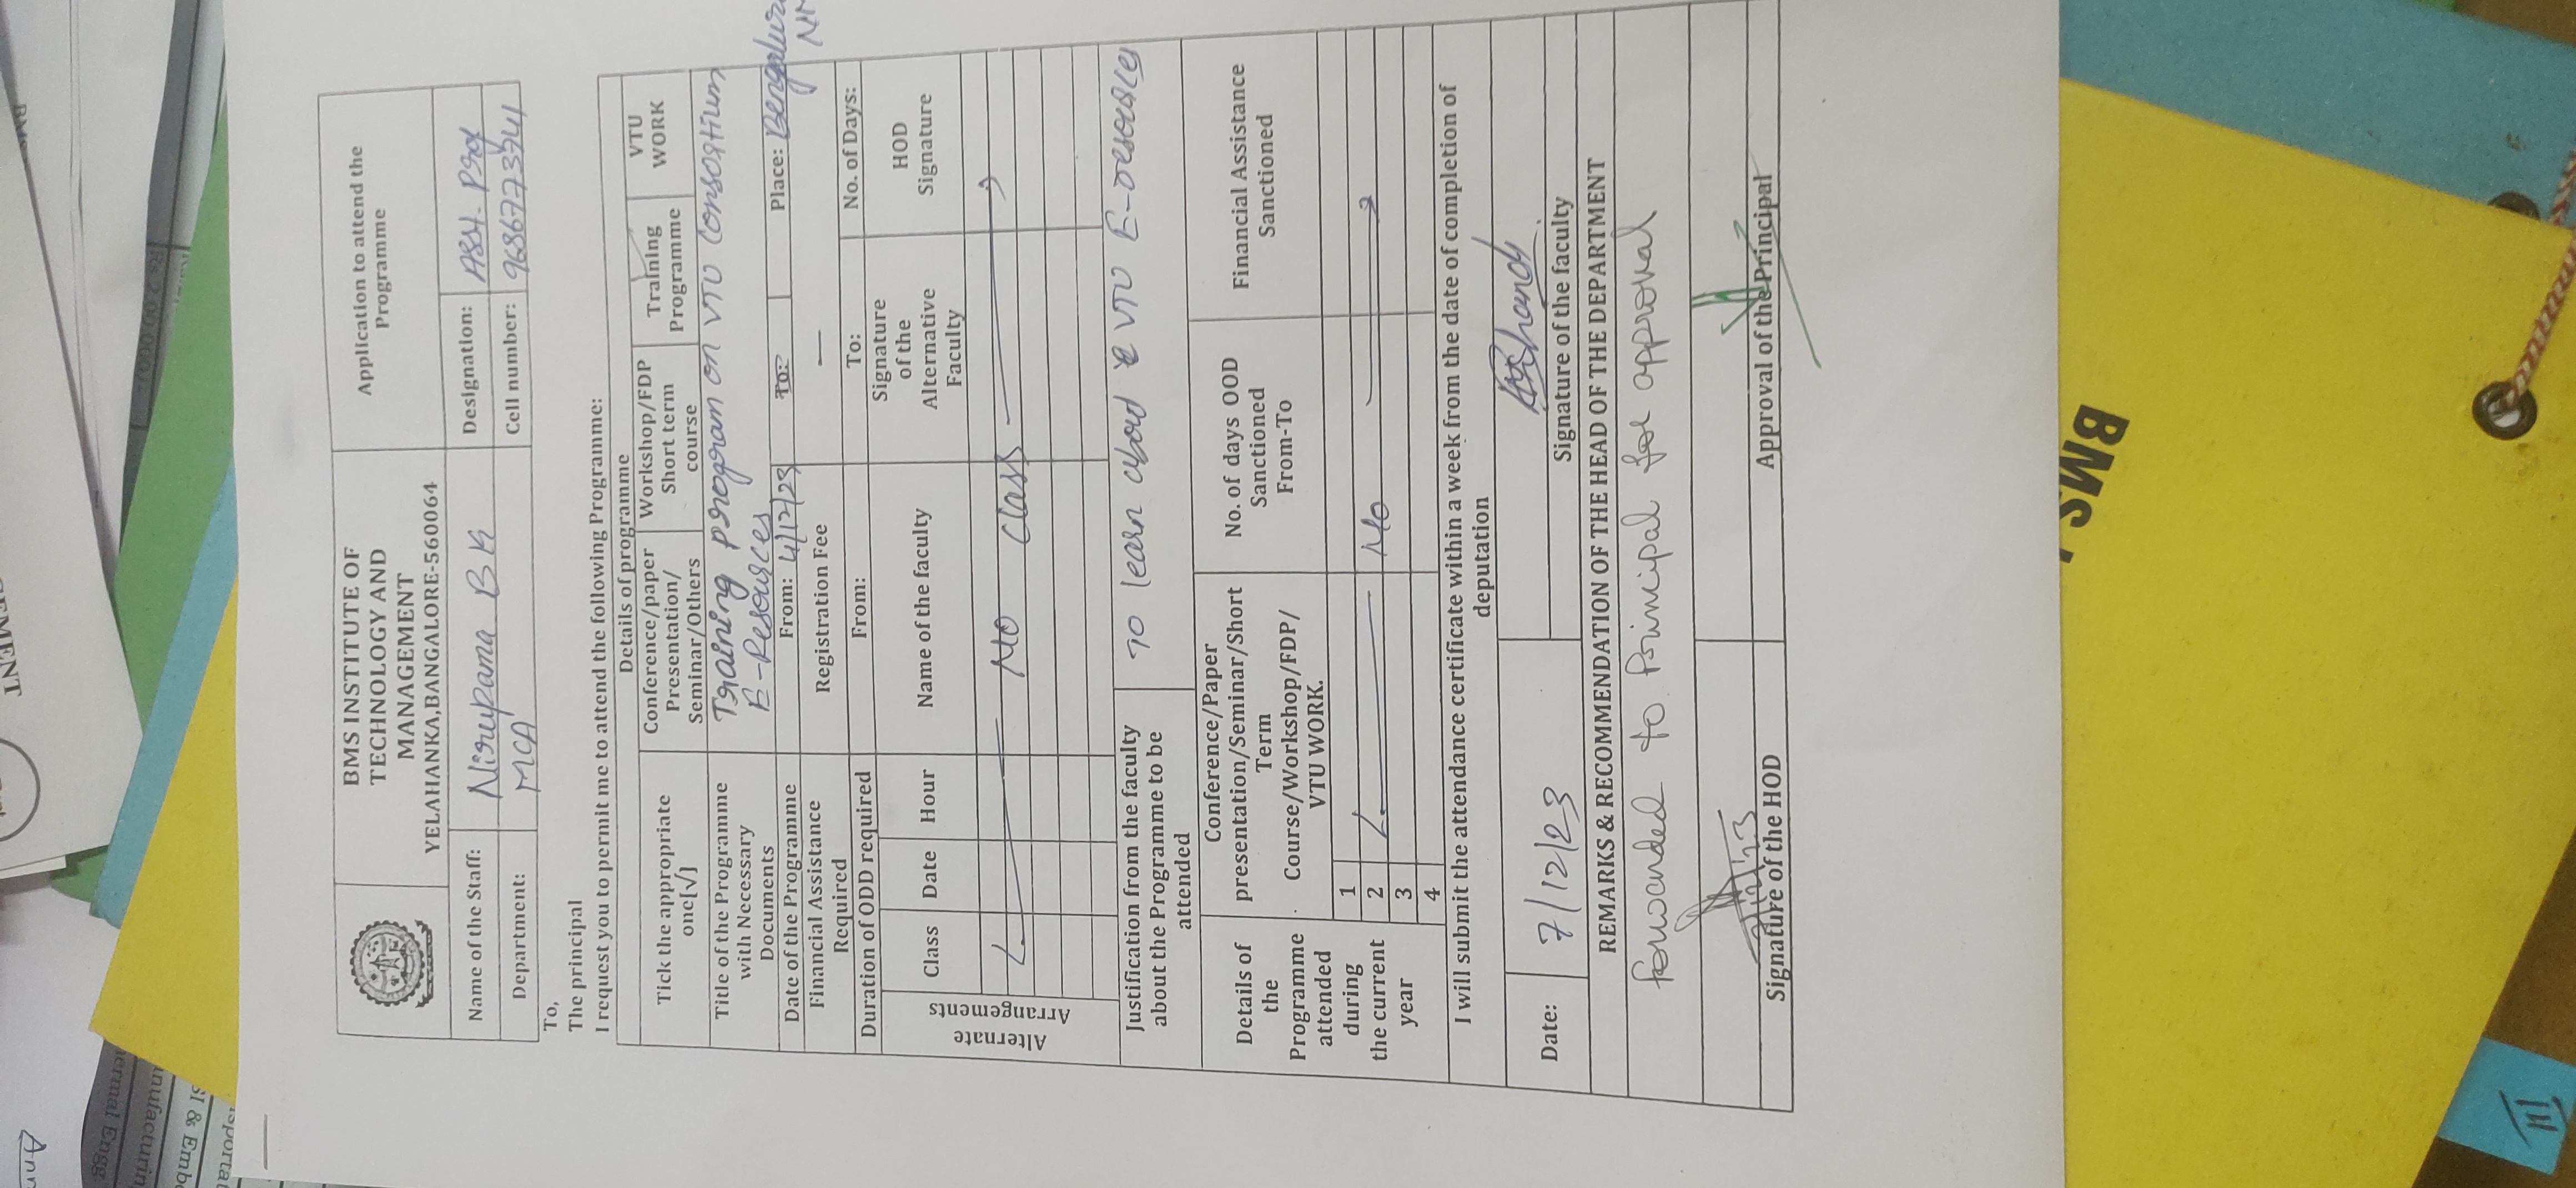 EMENT
BMS
Ann
ermal Engg.
anufacturing
SI & Embe
sportat
Rs 2,00,000/-
BMS INSTITUTE OF
TECHNOLOGY AND
MANAGEMENT
YELAHANKA,BANGALORE-560064
Application to attend the
Programme
Name of the Staff: Nirupama B K
Designation: Asst. Prof
Department: MCA
Cell number: 9686773741
To,
The principal
I request you to permit me to attend the following Programme:
Details of programme
Tick the appropriate
one[√]
Conference/paper
Presentation/
Seminar/Others
Workshop/FDP
Short term
course
Training
Programme
VTU
WORK
Title of the Programme
with Necessary
Documents
Training program on VTU Consortium
E-Resources
Date of the Programme From: 4/12/23 To: Place: Bengaluru
Financial Assistance
Required
Registration Fee —
Duration of ODD required From: To: No. of Days:
Alternate
Arrangements
Class Date Hour Name of the faculty
Signature
of the
Alternative
Faculty
HOD
Signature
No class
Justification from the faculty
about the Programme to be
attended
To learn about VTU E-resources
Details of
the
Programme
attended
during
the current
year
Conference/Paper
presentation/Seminar/Short
Term
Course/Workshop/FDP/
VTU WORK.
No. of days OOD
Sanctioned
From-To
Financial Assistance
Sanctioned
1
2 No
3
4
I will submit the attendance certificate within a week from the date of completion of
deputation
Date: 7/12/23
Signature of the faculty
REMARKS & RECOMMENDATION OF THE HEAD OF THE DEPARTMENT
forwarded to Principal for approval
7/12/23
Signature of the HOD
Approval of the Principal
BMS
III